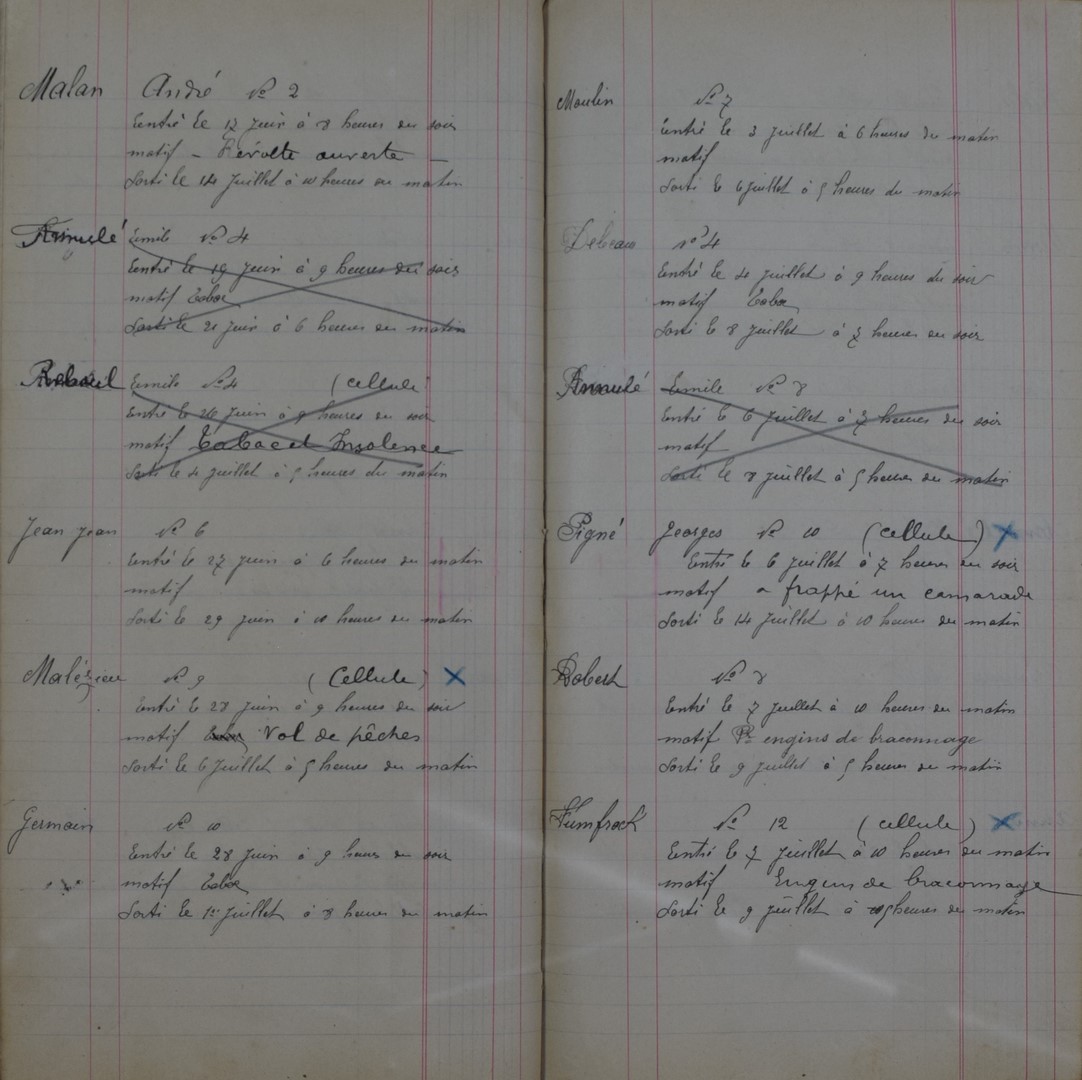 Malan André No 2
Entré le 12 juin à 8 heures du soir
motif - Révolte ouverte -
Sorti le 14 juillet à 10 heures du matin
Annulé Emile No 4
Entré le 19 juin à 9 heures du soir
motif Tabac
Sorti le 21 juin à 6 heures du matin
Emile No 4 (cellule)
Entré le 26 juin à 9 heures du soir
motif Tabac et Insolence
Sorti le 4 juillet à 5 heures du matin
Jean Jean No 6
Entré le 27 juin à 6 heures du matin
motif
Sorti le 29 juin à 10 heures du matin
Malézieu No 9 (Cellule) X
Entré le 28 juin à 9 heures du soir
motif Vol de pêches
Sorti le 6 juillet à 5 heures du matin
Germain No 10
Entré le 28 juin à 9 heures du soir
motif Tabac
Sorti le 1er juillet à 8 heures du matin
Moulin No 7
Entré le 3 juillet à 6 heures du matin
motif
Sorti le 6 juillet à 5 heures du matin
Lebeau No 4
Entré le 4 juillet à 9 heures du soir
motif Tabac
Sorti le 8 juillet à 7 heures du soir
Annulé Emile No 8
Entré le 6 juillet à 7 heures du soir
motif
Sorti le 8 juillet à 5 heures du matin
Pigné Georges No 10 (cellule) X
Entré le 6 juillet à 7 heures du soir
motif a frappé un camarade
Sorti le 14 juillet à 10 heures du matin
Robert No 8
Entré le 7 juillet à 10 heures du matin
motif Pr engins de braconnage
Sorti le 9 juillet à 5 heures du matin
Fumfrock No 12 (cellule) X
Entré le 7 juillet à 10 heures du matin
motif Engins de braconnage
Sorti le 9 juillet à 5 heures du matin